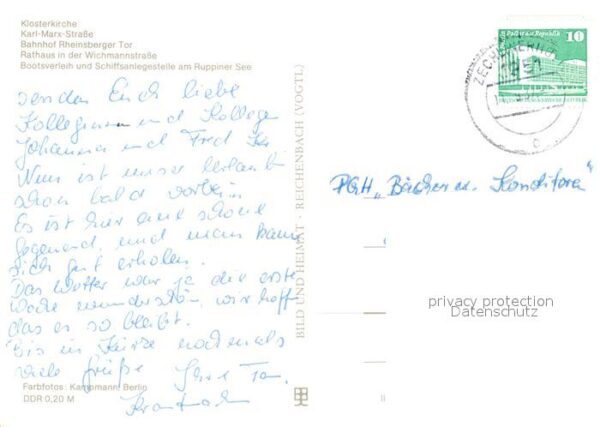 Klosterkirche
Karl-Marx-Straße
Bahnhof Rheinsberger Tor
Rathaus in der Wichmannstraße
Bootsverleih und Schiffsanlegestelle am Ruppiner See
senden Euch liebe
Kolleginnen und Kollegen
Johanna und Fred
Nun ist unser Urlaub
schon bald vorbei.
Es ist hier eine schöne
Gegend, und man kann
sich gut erholen.
Das Wetter war ja die erste
Woche wunderschön, wir hoff
das es so bleibt.
Bis in Kürze nochmals
viele Grüße Ihre
Farbfotos: Kampmann, Berlin
DDR 0,20 M
BILD UND HEIMAT · REICHENBACH (VOGTL)
Palast der Republik 10
PGH „Bäcker u. Konditoren"
privacy protection
Datenschutz